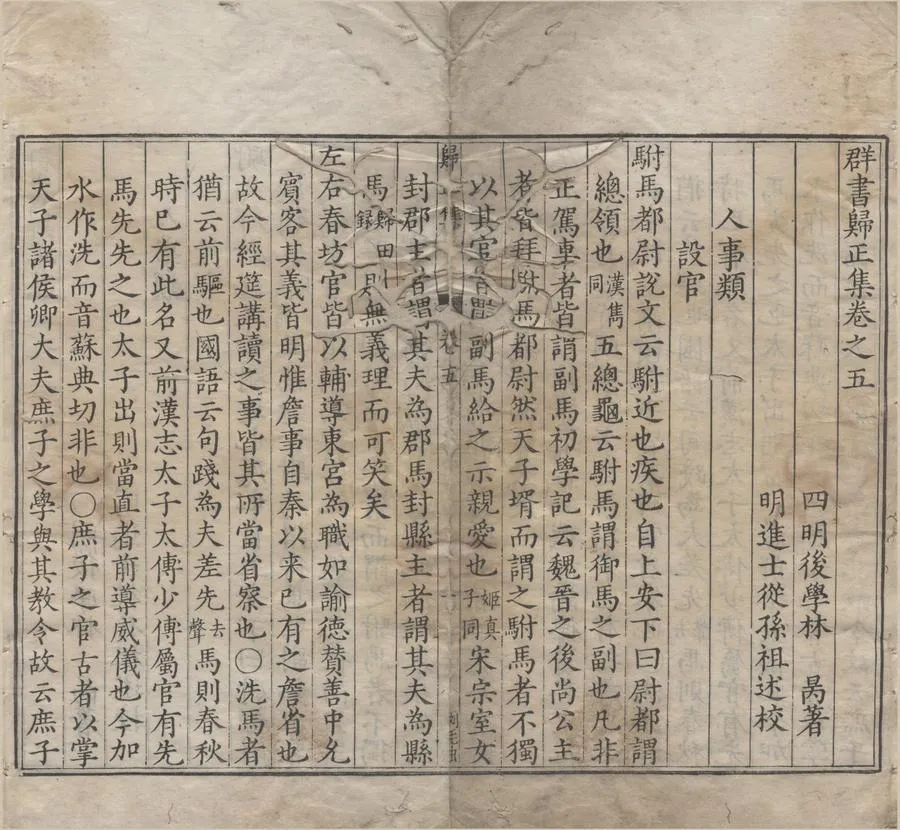 群書歸正集卷之五
四明後學林 昺著
明進士從孫祖述校
人事類
設官
駙馬都尉說文云駙近也疾也自上安下曰尉都謂
總領也漢雋同五總龜云駙馬謂御馬之副也凡非
正駕車者皆謂副馬初學記云魏晉之後尚公主
者皆拜駙馬都尉然天子壻而謂之駙馬者不獨
以其官首副馬給之示親愛也姬真子同宋宗室女
歸 集 卷五
封郡主者謂其夫為郡馬封縣主者謂其夫為縣
馬歸田錄則無義理而可笑矣
左右春坊官皆以輔導東宮為職如諭德贊善中允
賓客其義皆明惟詹事自秦以来已有之詹省也
故今經筵講讀之事皆其所當省察也〇洗馬者
猶云前驅也國語云句踐為夫差先去聲馬則春秋
時已有此名又前漢志太子太傅少傅屬官有先
馬先先之也太子出則當直者前導威儀也今加
水作洗而音蘇典切非也〇庶子之官古者以掌
天子諸侯卿大夫庶子之學與其教令故云庶子